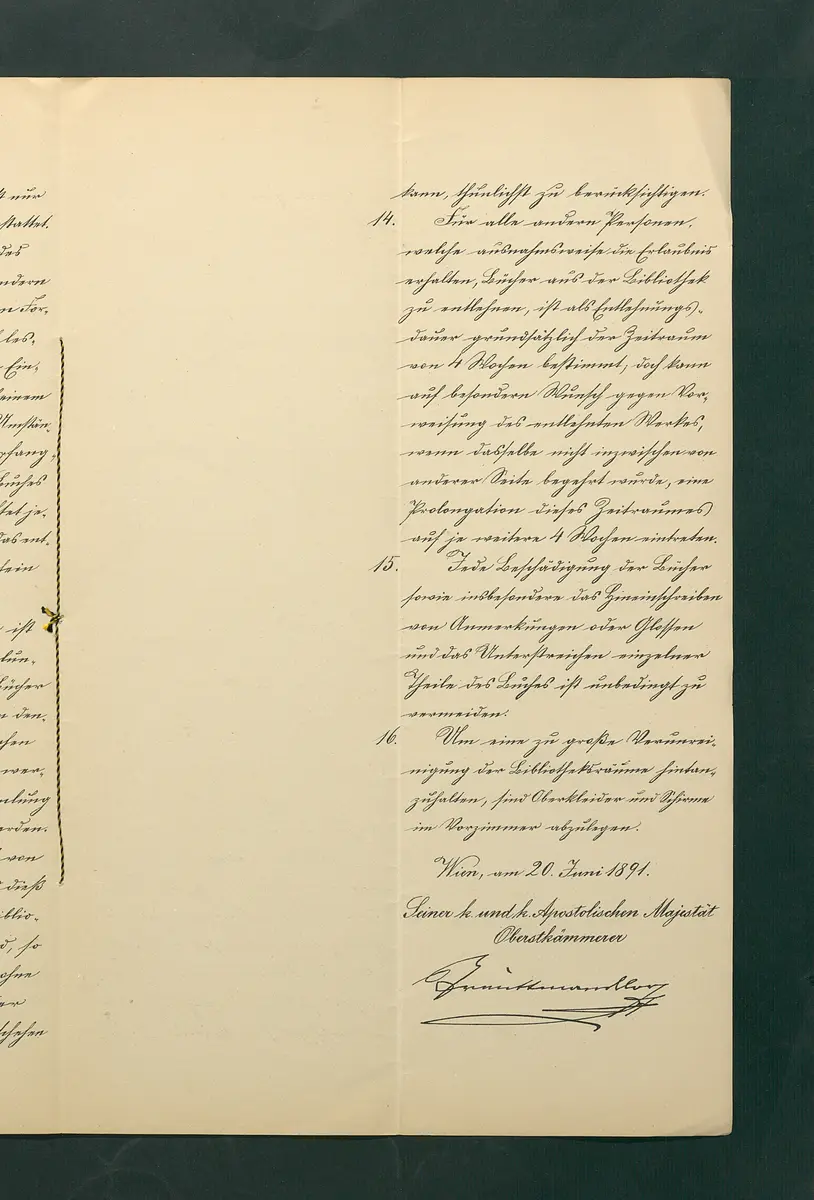 t nur
stattet.
des
ndern
n For-
les-
Ein-
einem
Umstän-
pfang-
Buches
tet je-
das ent-
tein
ist
lun-
ücher
n den-
chen
wer-
mlung
erden.
von
dieß
iblio-
d, so
ohne
er
schehen
kann, thunlichst zu berücksichtigen.
14. Für alle andern Personen,
welche ausnahmsweise die Erlaubnis
erhalten, Bücher aus der Bibliothek
zu entlehnen, ist als Entlehnungs-
dauer grundsätzlich der Zeitraum
von 4 Wochen bestimmt; doch kann
auf besondern Wunsch gegen Vor-
weisung des entlehnten Werkes,
wenn dasselbe nicht inzwischen von
anderer Seite begehrt wurde, eine
Prolongation dieses Zeitraumes
auf je weitere 4 Wochen eintreten.
15. Jede Beschädigung der Bücher
sowie insbesondere das Hineinschreiben
von Anmerkungen oder Glossen
und das Unterstreichen einzelner
Theile des Buches ist unbedingt zu
vermeiden.
16. Um eine zu große Verunrei-
nigung der Bibliotheksräume hintan-
zuhalten, sind Oberkleider und Schirme
im Vorzimmer abzulegen.
Wien, am 20. Juni 1891.
Seiner k. und k. Apostolischen Majestät
Oberstkämmerer